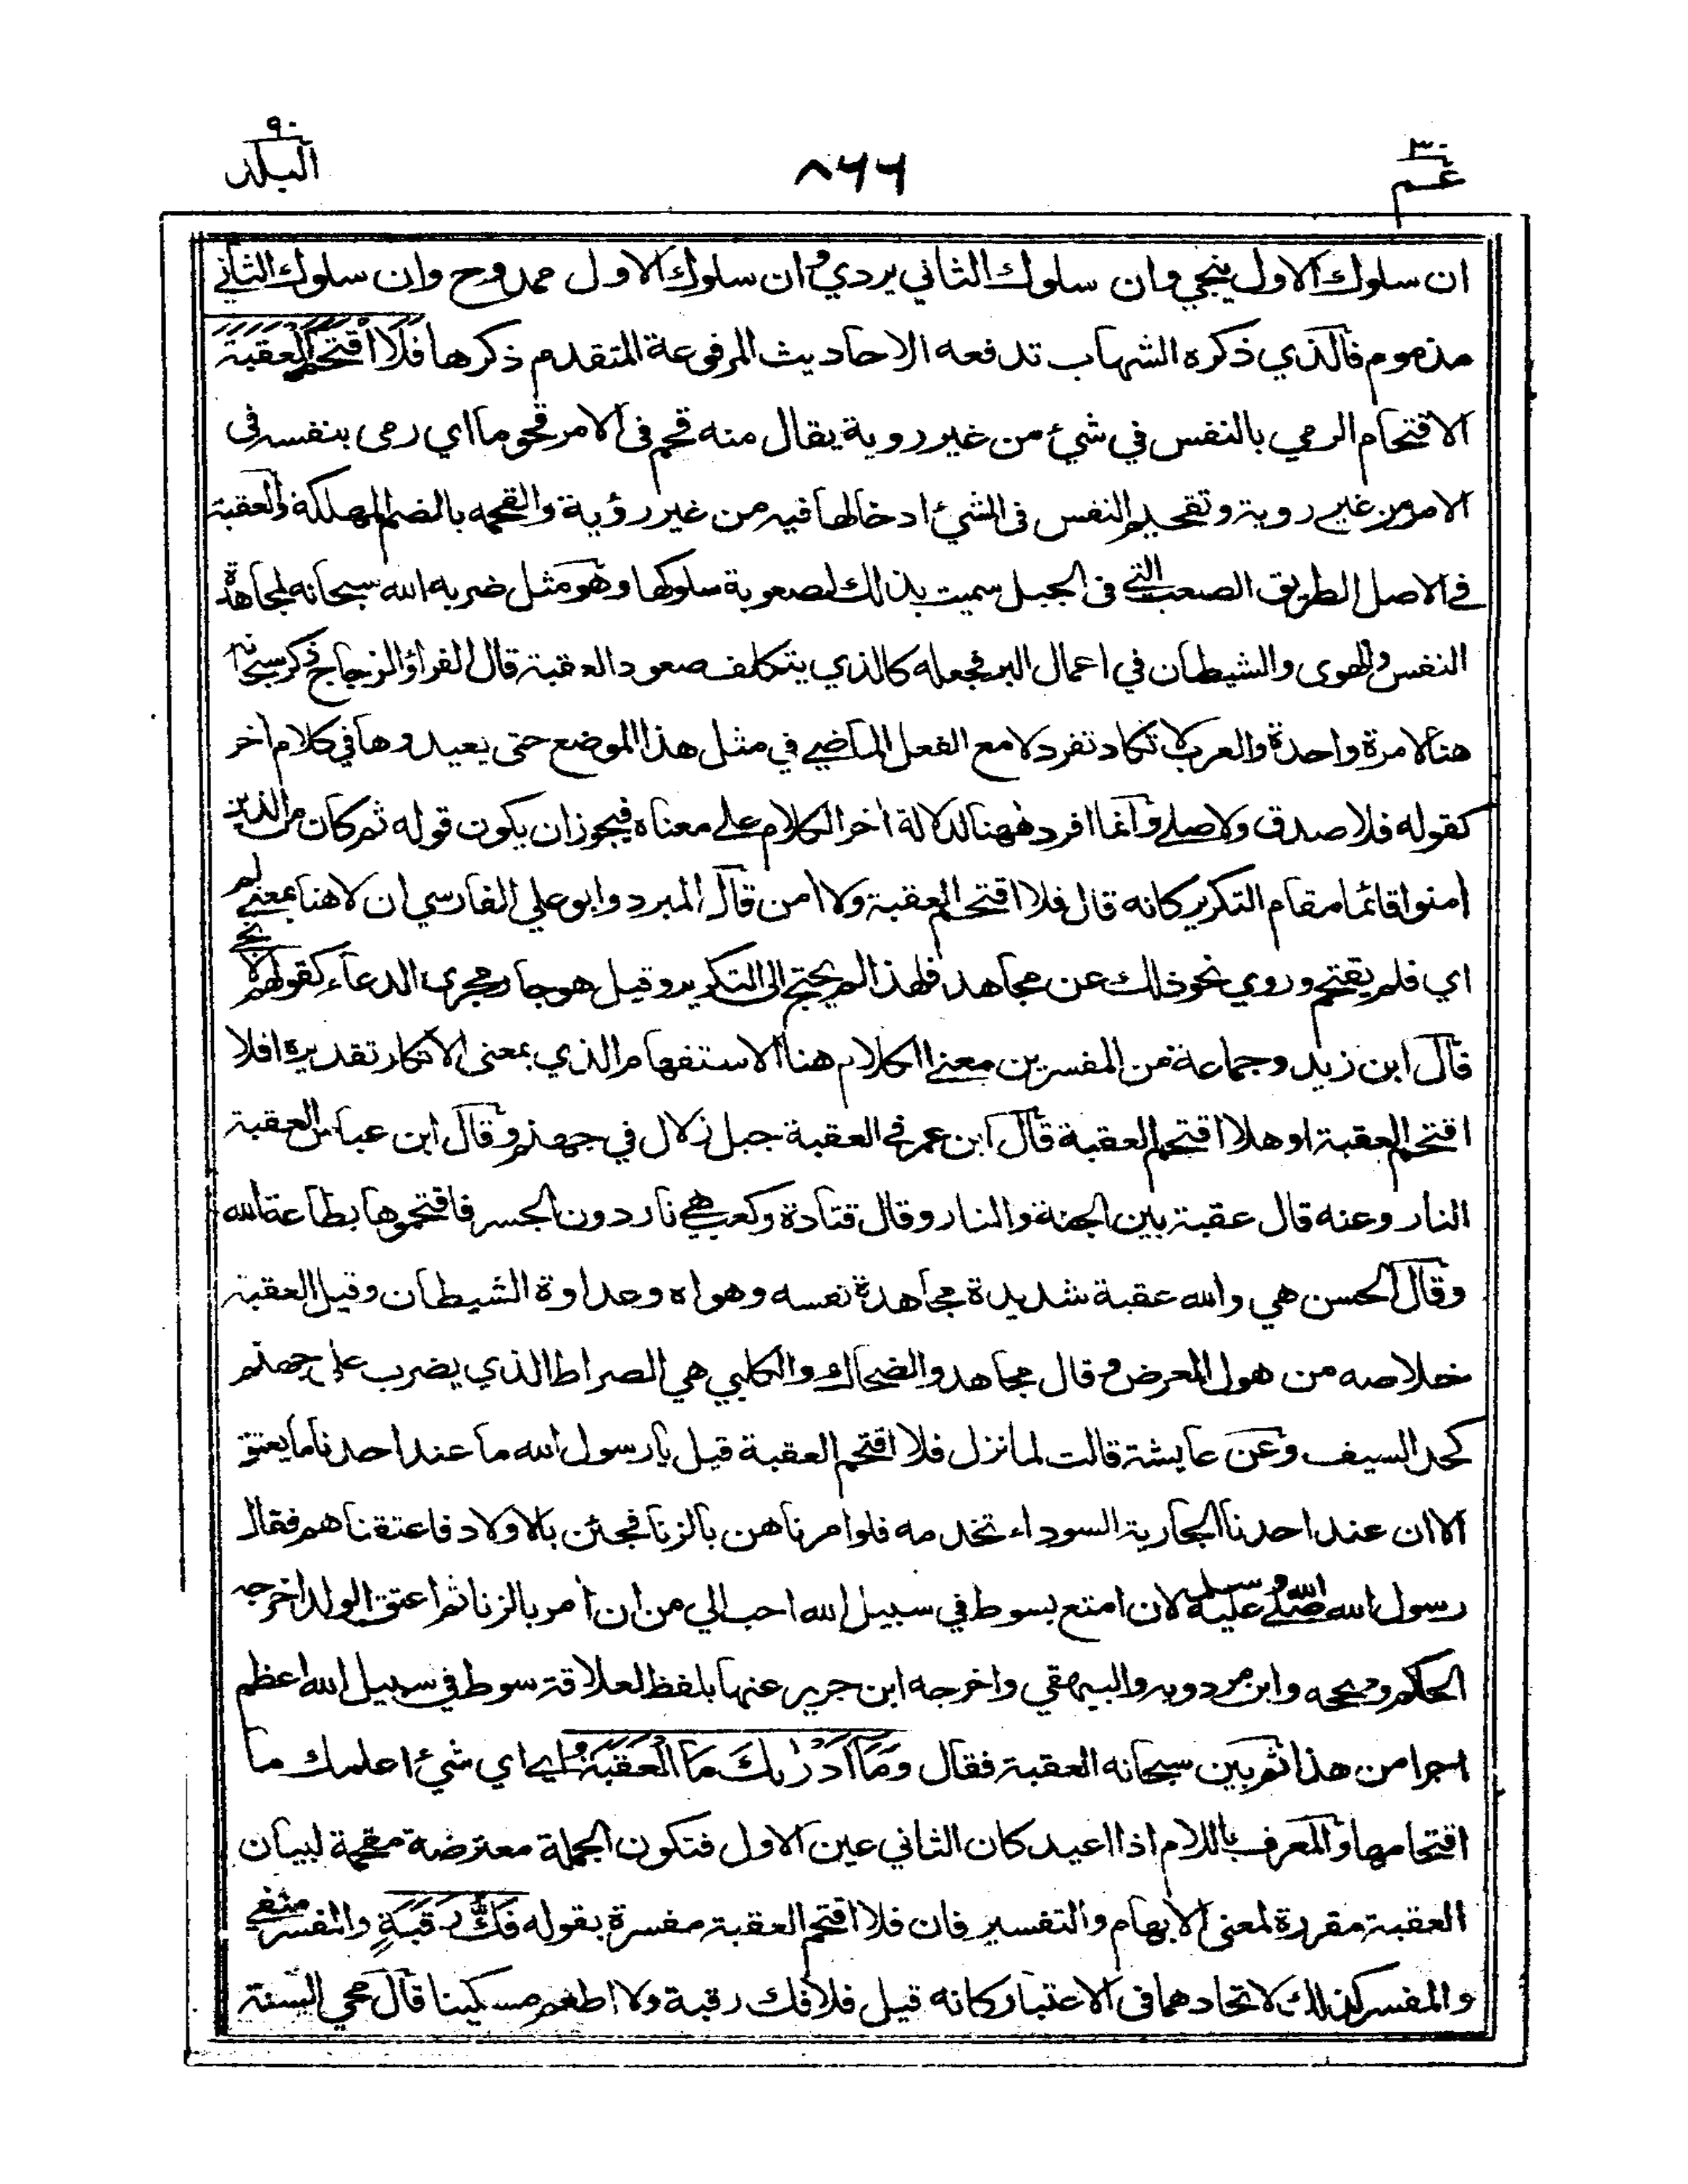 ٣٠
عم
٨٦٦
٩٠
البلد
ان سلوك الاول ينجي وان سلوك الثاني يردي وان سلوك الاول ممدوح وان سلوك الثاني
مذموم فالذي ذكره الشهاب تدفعه الاحاديث المرفوعة المتقدم ذكرها فَلَا اقْتَحَمَ الْعَقَبَةَ
الاقتحام الرمي بالنفس في شيء من غير روية يقال منه قحم فى الامر قحوما اي رمى بنفسه فى
الامر من غير روية وتقحيم النفس فى الشيء ادخالها فيه من غير رؤية والقحمه بالضم المهلكة والعقبة
في الاصل الطريق الصعب التي فى الجبل سميت بذلك لصعوبة سلوكها وهو مثل ضربه الله سبحانه لمجاهدة
النفس والهوى والشيطان في اعمال البر فجعله كالذي يتكلف صعود العقبة قال الفراؤ الزجاج ذكر سبحانه
هنا لا مرة واحدة والعرب لا تكاد تفرد لا مع الفعل الماضي في مثل هذا الموضع حتى يعيدوها في كلام اخر
كقوله فلا صدق ولا صلى وانما افرد ههنا لدلالة اخر الكلام على معناه فيجوز ان يكون قوله ثم كان من الذين
امنوا قائما مقام التكرير كانه قال فلا اقتحم العقبة ولا امن قال المبرد وابو علي الفارسي ان لا هنا بمعنى لم
اي فلم يقتحم وروي نحو ذلك عن مجاهد فلهذا لم يحتج الى التكرير وقيل هو جار مجرى الدعاء كقولهم لا نجي
قال ابن زيد وجماعة من المفسرين معنى الكلام هنا الاستفهام الذي بمعنى الانكار تقديره افلا
اقتحم العقبة او هلا اقتحم العقبة قال ابن عمر في العقبة جبل زلال في جهنم وقال ابن عباس العقبة
النار وعنه قال عقبة بين الجنة والنار وقال قتادة وكعب هي نار دون الجسر فاقتحموها بطاعة الله
وقال الحسن هي والله عقبة شديدة مجاهدة نفسه وهواه وعداوة الشيطان وقيل العقبة
خلاصه من هول المعرض وقال مجاهد والضحاك والكلبي هي الصراط الذي يضرب على جهنم
كحد السيف وعن عايشة قالت لما نزل فلا اقتحم العقبة قيل يا رسول الله ما عند احدنا ما يعتق
الا ان عند احدنا الجارية السوداء تخدمه فلو امرناهن بالزنا فجئن بالاولاد فاعتقناهم فقال
رسول الله صلى الله عليه وسلم لان امتع بسوط في سبيل الله احب الي من ان امر بالزنا ثم اعتق الولد اخرجه
الحاكم وصححه وابن مردويه والبيهقي واخرجه ابن جرير عنها بلفظ لعلاقة سوط في سبيل الله اعظم
اجرا من هذا ثم بين سبحانه العقبة فقال وَمَا أَدْرٰىكَ مَا الْعَقَبَةُ اي اي شيء اعلمك ما
اقتحامها والمعرف باللام اذا اعيد كان الثاني عين الاول فتكون الجملة معترضة مقحمة لبيان
العقبة مقررة لمعنى الابهام والتفسير فان فلا اقتحم العقبة مفسرة بقوله فَكُّ رَقَبَةٍ والمفسر منفي
والمفسر كذلك لاتحادهما فى الاعتبار كانه قيل فلا فك رقبة ولا اطعم مسكينا قال محي السنة